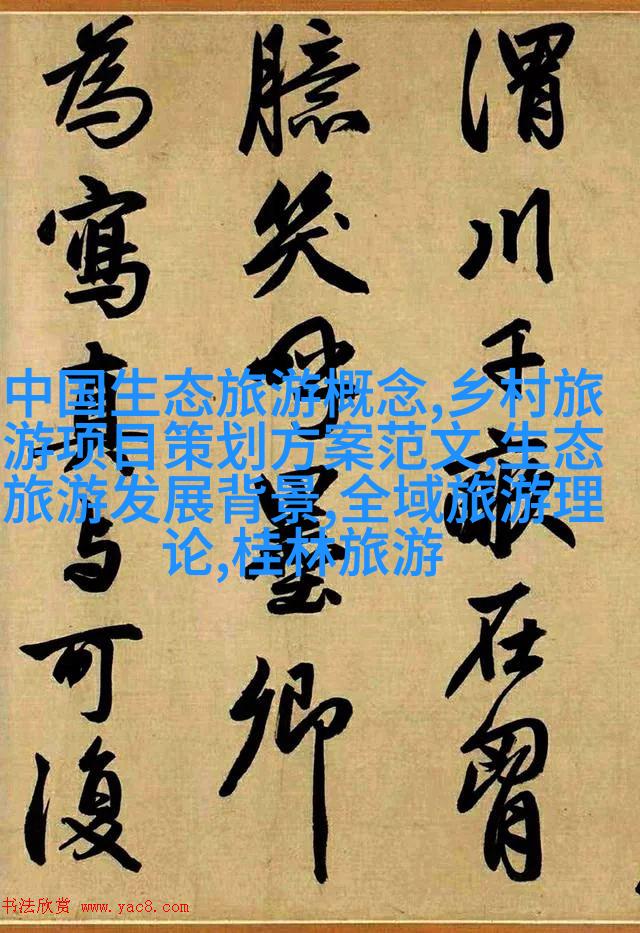 渭川千畝在胷
臆笑呼墨卿
為寫真与可復
中国生态旅游概念,乡村旅
游项目策划方案范文,生态
旅游发展背景,全域旅游理
论,桂林旅游
书法欣赏 www.yac8.com